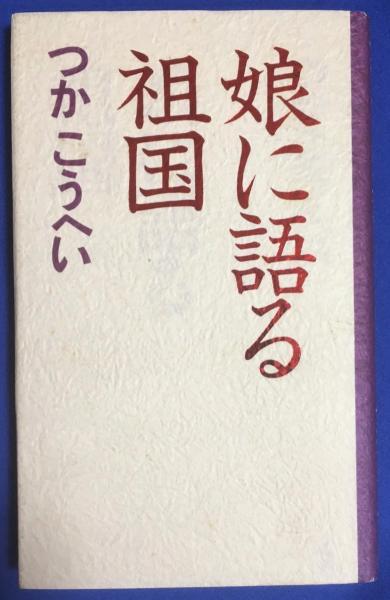 娘に語る
祖国
つかこうへい